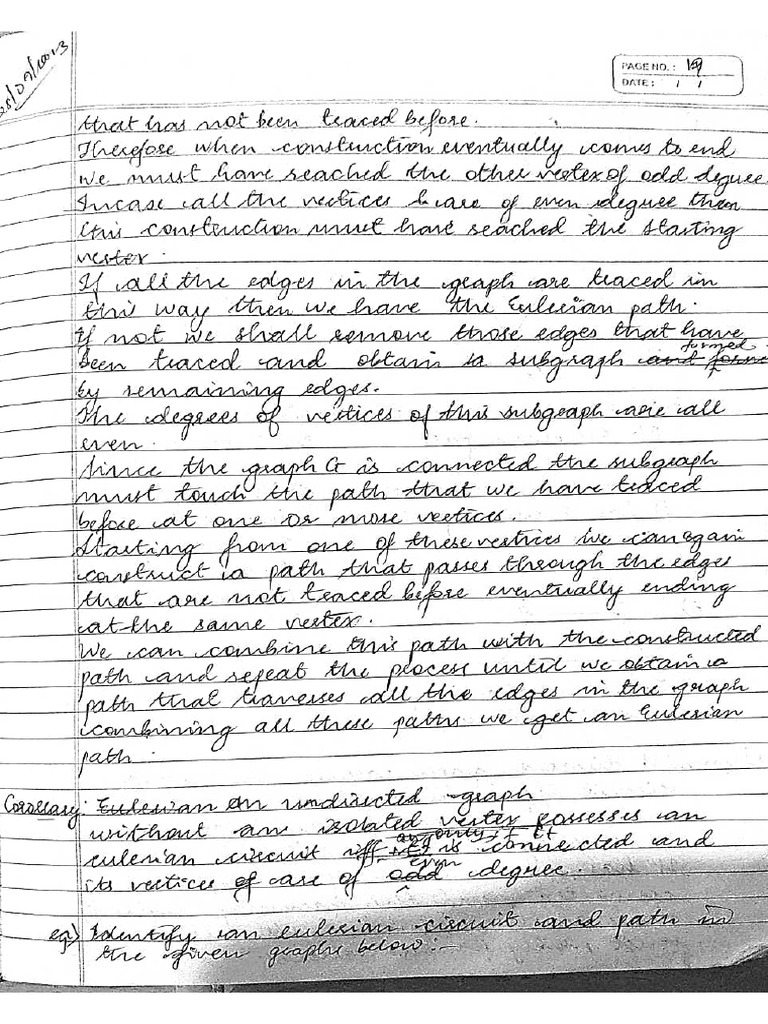 25/09/2013
PAGE NO.: 19
DATE: / /
that has not been traced before.
Therefore when construction eventually comes to end
we must have reached the other vertex of odd degree.
Incase all the vertices are of even degree then
this construction must have reached the starting
vertex.
If all the edges in the graph are traced in
this way then we have the Eulerian path.
If not we shall remove those edges that have
been traced and obtain a subgraph formed
by remaining edges.
The degrees of vertices of this subgraph are all
even.
Since the graph G is connected the subgraph
must touch the path that we have traced
before at one or more vertices.
Starting from one of these vertices we can again
construct a path that passes through the edges
that are not traced before eventually ending
at the same vertex.
We can combine this path with the constructed
path and repeat the process until we obtain a
path that traverses all the edges in the graph
combining all these paths we get an Eulerian
path.
Corollary: Eulerian An undirected graph
without an isolated vertex possesses an
eulerian circuit iff it is connected and
its vertices of are of even odd degree.
eg) Identify an eulerian circuit and path in
the given graphs below:-